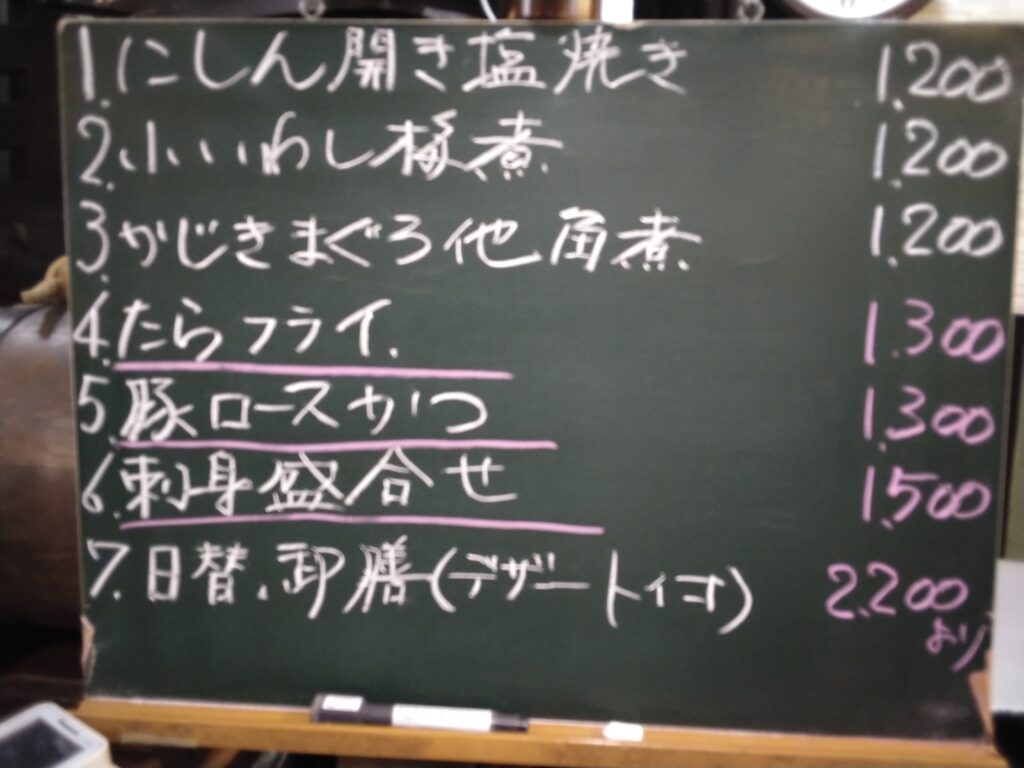 1.にしん開き塩焼き 1.200
2.小いわし梅煮 1.200
3.かじきまぐろ他角煮 1.200
4.たらフライ. 1.300
5.豚ロースかつ 1.300
6.刺身盛合せ 1.500
7.日替.御膳(デザート付) 2.200
より